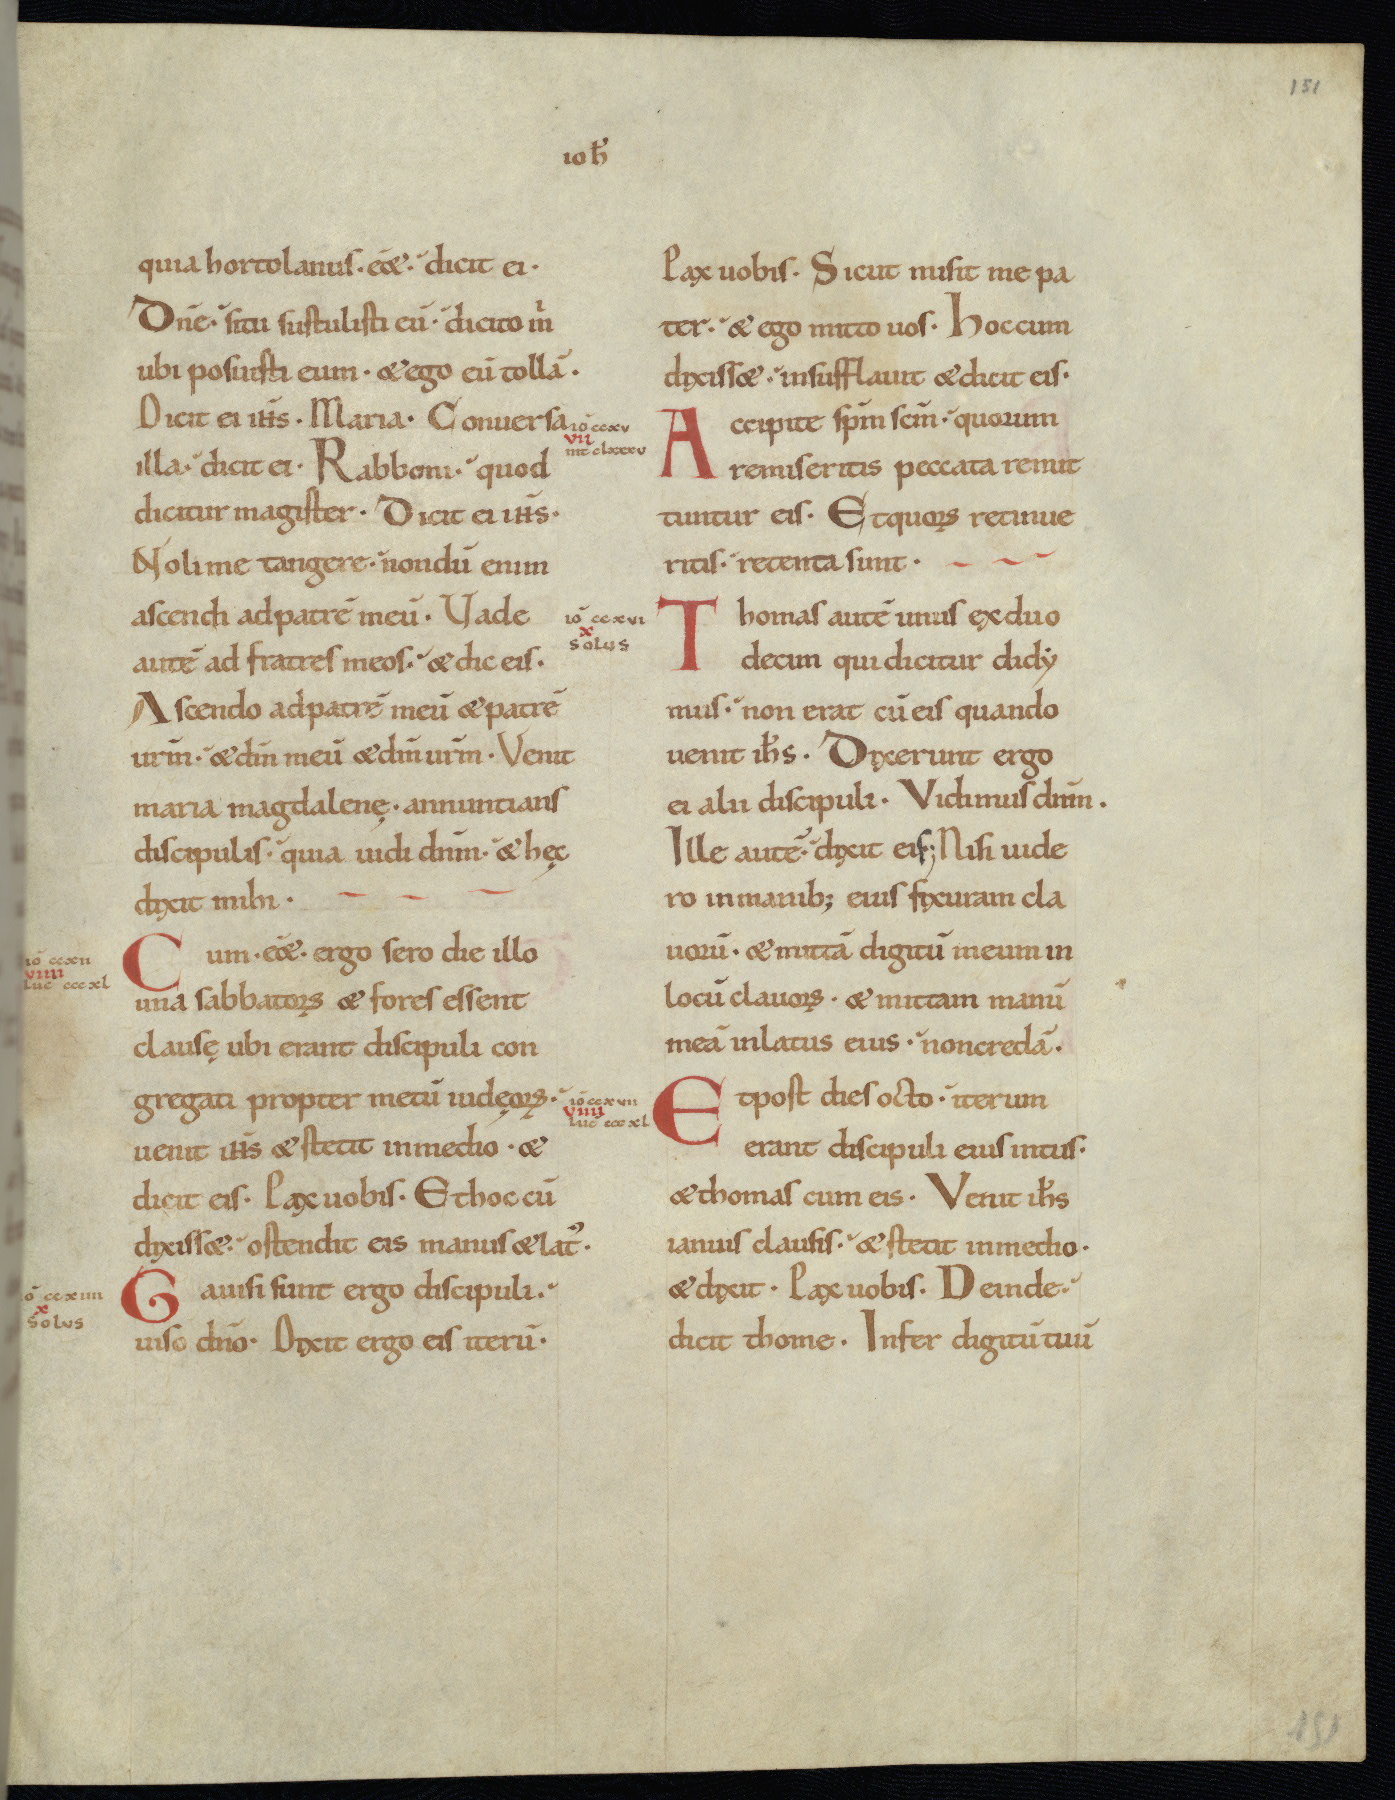 151
ioħ
quia hortolanus · eēt · dicit ei ·
Dn̄e · situ sustulisti eū · dicito m̄
ubi posuisti eum · & ego eū tollā ·
Dicit ei ih̄s · Maria · Conuersa
illa · dicit ei · Rabboni · quod
dicitur magister · Dicit ei ih̄s ·
Noli me tangere · nondū enim
ascendi ad patrē meū · Uade
autē ad fratres meos · & dic eis ·
Ascendo ad patrē meū & patrē
ur̄m · & dm̄ meū & dm̄ ur̄m · Venit
maria magdalenę · annuntians
discipulis · quia uidi dnm̄ · & hęc
dixit mihi ·
iō ccxii
viiii
luc cccxl
Cum · eēt · ergo sero die illo
una sabbatoꝝ & fores essent
clausę ubi erant discipuli con
gregati propter metū iudęoꝝ ·
uenit ih̄s & stetit in medio · &
dicit eis · Pax uobis · Et hoc cū
dixiss& · ostendit eis manus & lat᾽ ·
iō ccxiiii
x
solus
Gauisi sunt ergo discipuli ·
uiso dn̄o · Dixit ergo eis iterū ·
Pax uobis · Sicut misit me pa
ter · & ego mitto uos · Hoc cum
dixiss& · insufflauit & dicit eis ·
iō ccxv
vii
mt clxxxv
Accipite sp̄m sc̄m · quorum
remiseritis peccata remit
tuntur eis · Et quoꝝ retinue
ritis · retenta sunt ·
iō ccxvi
x
solus
Thomas autē unus ex duo
decim qui dicitur didẏ
mus · non erat cū eis quando
uenit ih̄s · Dixerunt ergo
ei alii discipuli · Vidimus dnm̄ ·
Ille autē · dixit eis; Nisi uide
ro in manib; eius fixuram cla
uorū · & mittā digitū meum in
locū clauoꝝ · & mittam manū
meā in latus eius · non credā ·
iō ccxvii
viiii
luc cccxl
Et post dies octo · iterum
erant discipuli eius intus ·
& thomas cum eis · Venit ih̄s
ianuis clausis · & stetit in medio ·
& dixit · Pax uobis · Deinde ·
dicit thome · Infer digitū tuū
151